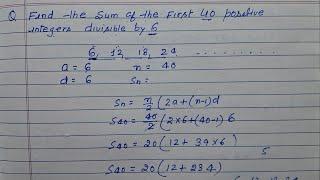 Q Find the Sum of the first 40 positive
integers divisible by 6
6, 12, 18, 24 .........
a = 6 n = 40
d = 6 Sn =
Sn = n/2 (2a+(n-1)d
S40 = 40/2 (2×6+(40-1)6
S40 = 20(12+ 39×6)
S40 = 20(12+234)